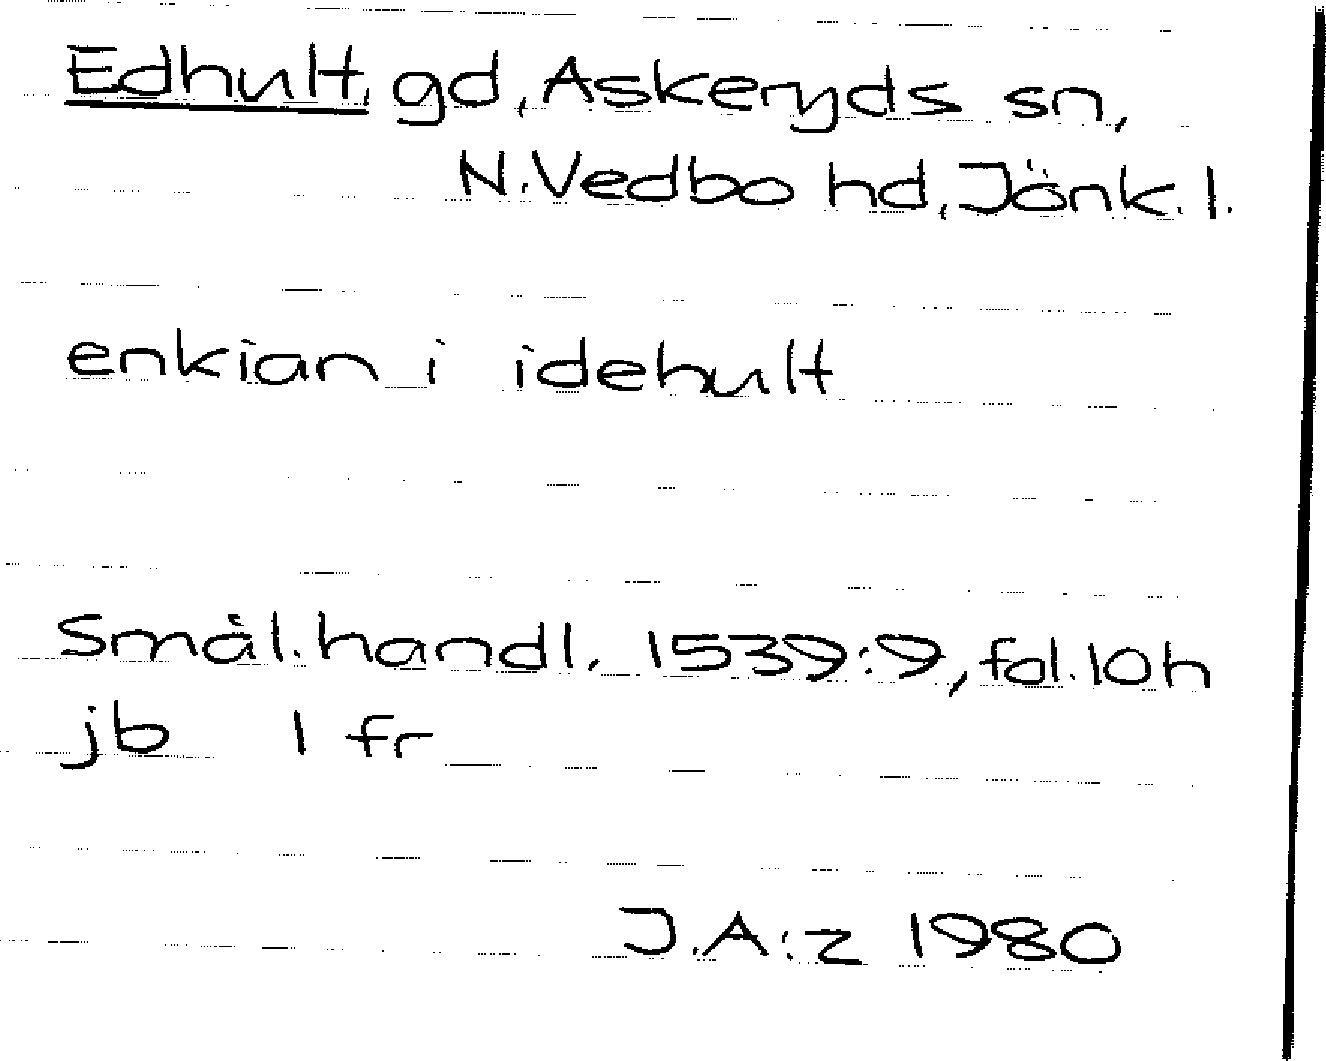 Edhult, gd, Askeryds sn,
N. Vedbo hd, Jönk. l.
enkian i idehult
Smål. handl. 1539:9, fol. 10h
jb 1 fr
J.A:z 1980